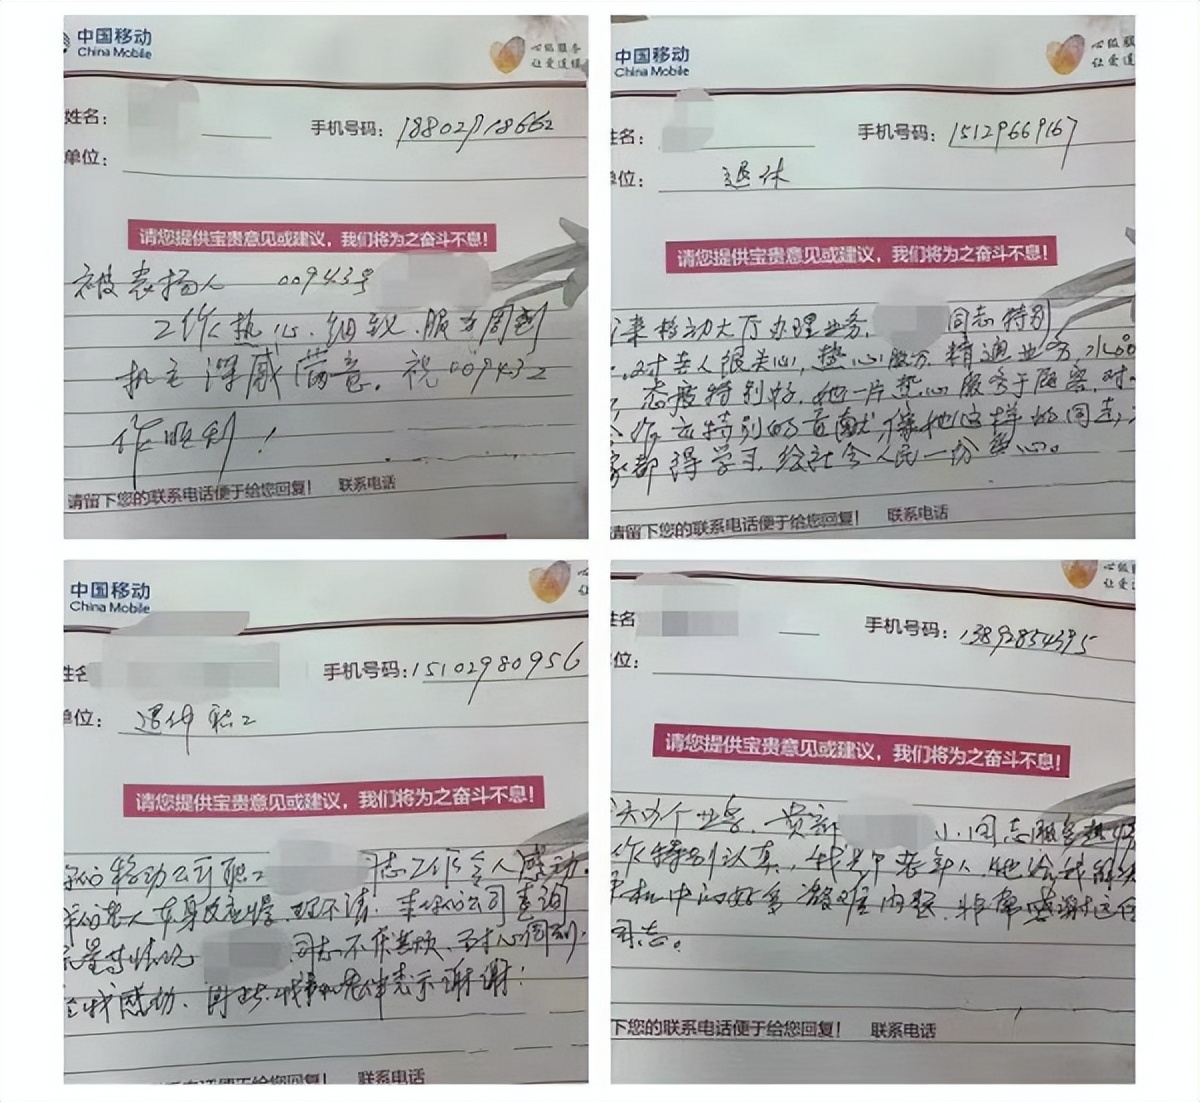 中国移动
China Mobile
心级服务
让爱连接
姓名：
手机号码：18802718662
单位：
请您提供宝贵意见或建议，我们将为之奋斗不息！
被表扬人 00943号
工作热心、细致、服务周到
机主深感满意。祝00943工
作顺利！
请留下您的联系电话便于给您回复！ 联系电话
中国移动
China Mobile
心级服
让爱连
姓名：
手机号码：15129669167
单位：
退休
请您提供宝贵意见或建议，我们将为之奋斗不息！
来移动大厅办理业务，
同志特别
对老人很关心，热心服务，精通业务，水
态度特别好，她一片热心服务于顾客，对
工作去特别的贡献，像她这样的同志，
家都得学习，给社会人民一份爱心。
请留下您的联系电话便于给您回复！ 联系电话
中国移动
China Mobile
姓名
手机号码：15102980956
单位：
退休职工
请您提供宝贵意见或建议，我们将为之奋斗不息！
移动公司职工
同志工作令人感动。
老人本身反应慢，听不清，来 公司查询
流量等情况
同志不厌其烦、耐心周到，
令我感动、因此 表示谢谢！
您的联系电话便于给您回复！ 联系电话
心级服
让爱
姓名
手机号码：13892854395
单位：
请您提供宝贵意见或建议，我们将为之奋斗不息！
办个业务，贵部
小同志服务热情
作特别认真，我是个老年人，她给我解决
手机中的好多疑难问题，非常感谢这位
同志。
下您的联系电话便于给您回复！ 联系电话